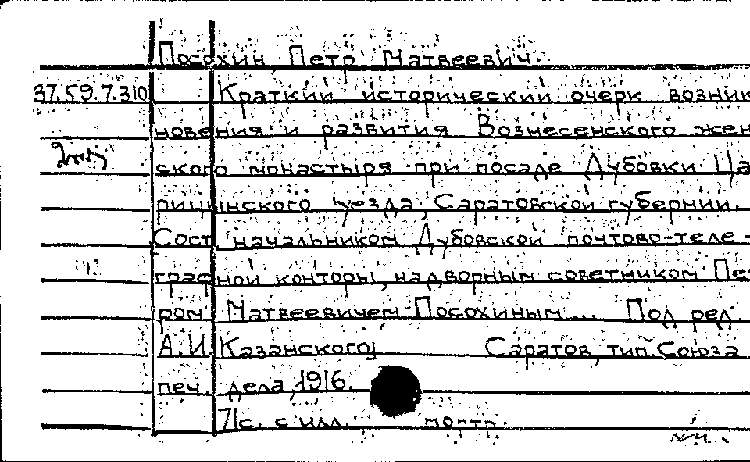 Посохин Петр Матвеевич.
37.59.7.310 Краткий исторический очерк возник-
новения и развития Вознесенского жен-
ского монастыря при посаде Дубовки Ца-
рицынского уезда, Саратовской губернии.
Сост. начальником Дубовской почтово-теле-
графной конторы, надворным советником Пет-
ром Матвеевичем Посохиным... Под ред.
А.И. Казанского, Саратов, тип. Союза
печ. дела, 1916.
71с. с илл. портр.